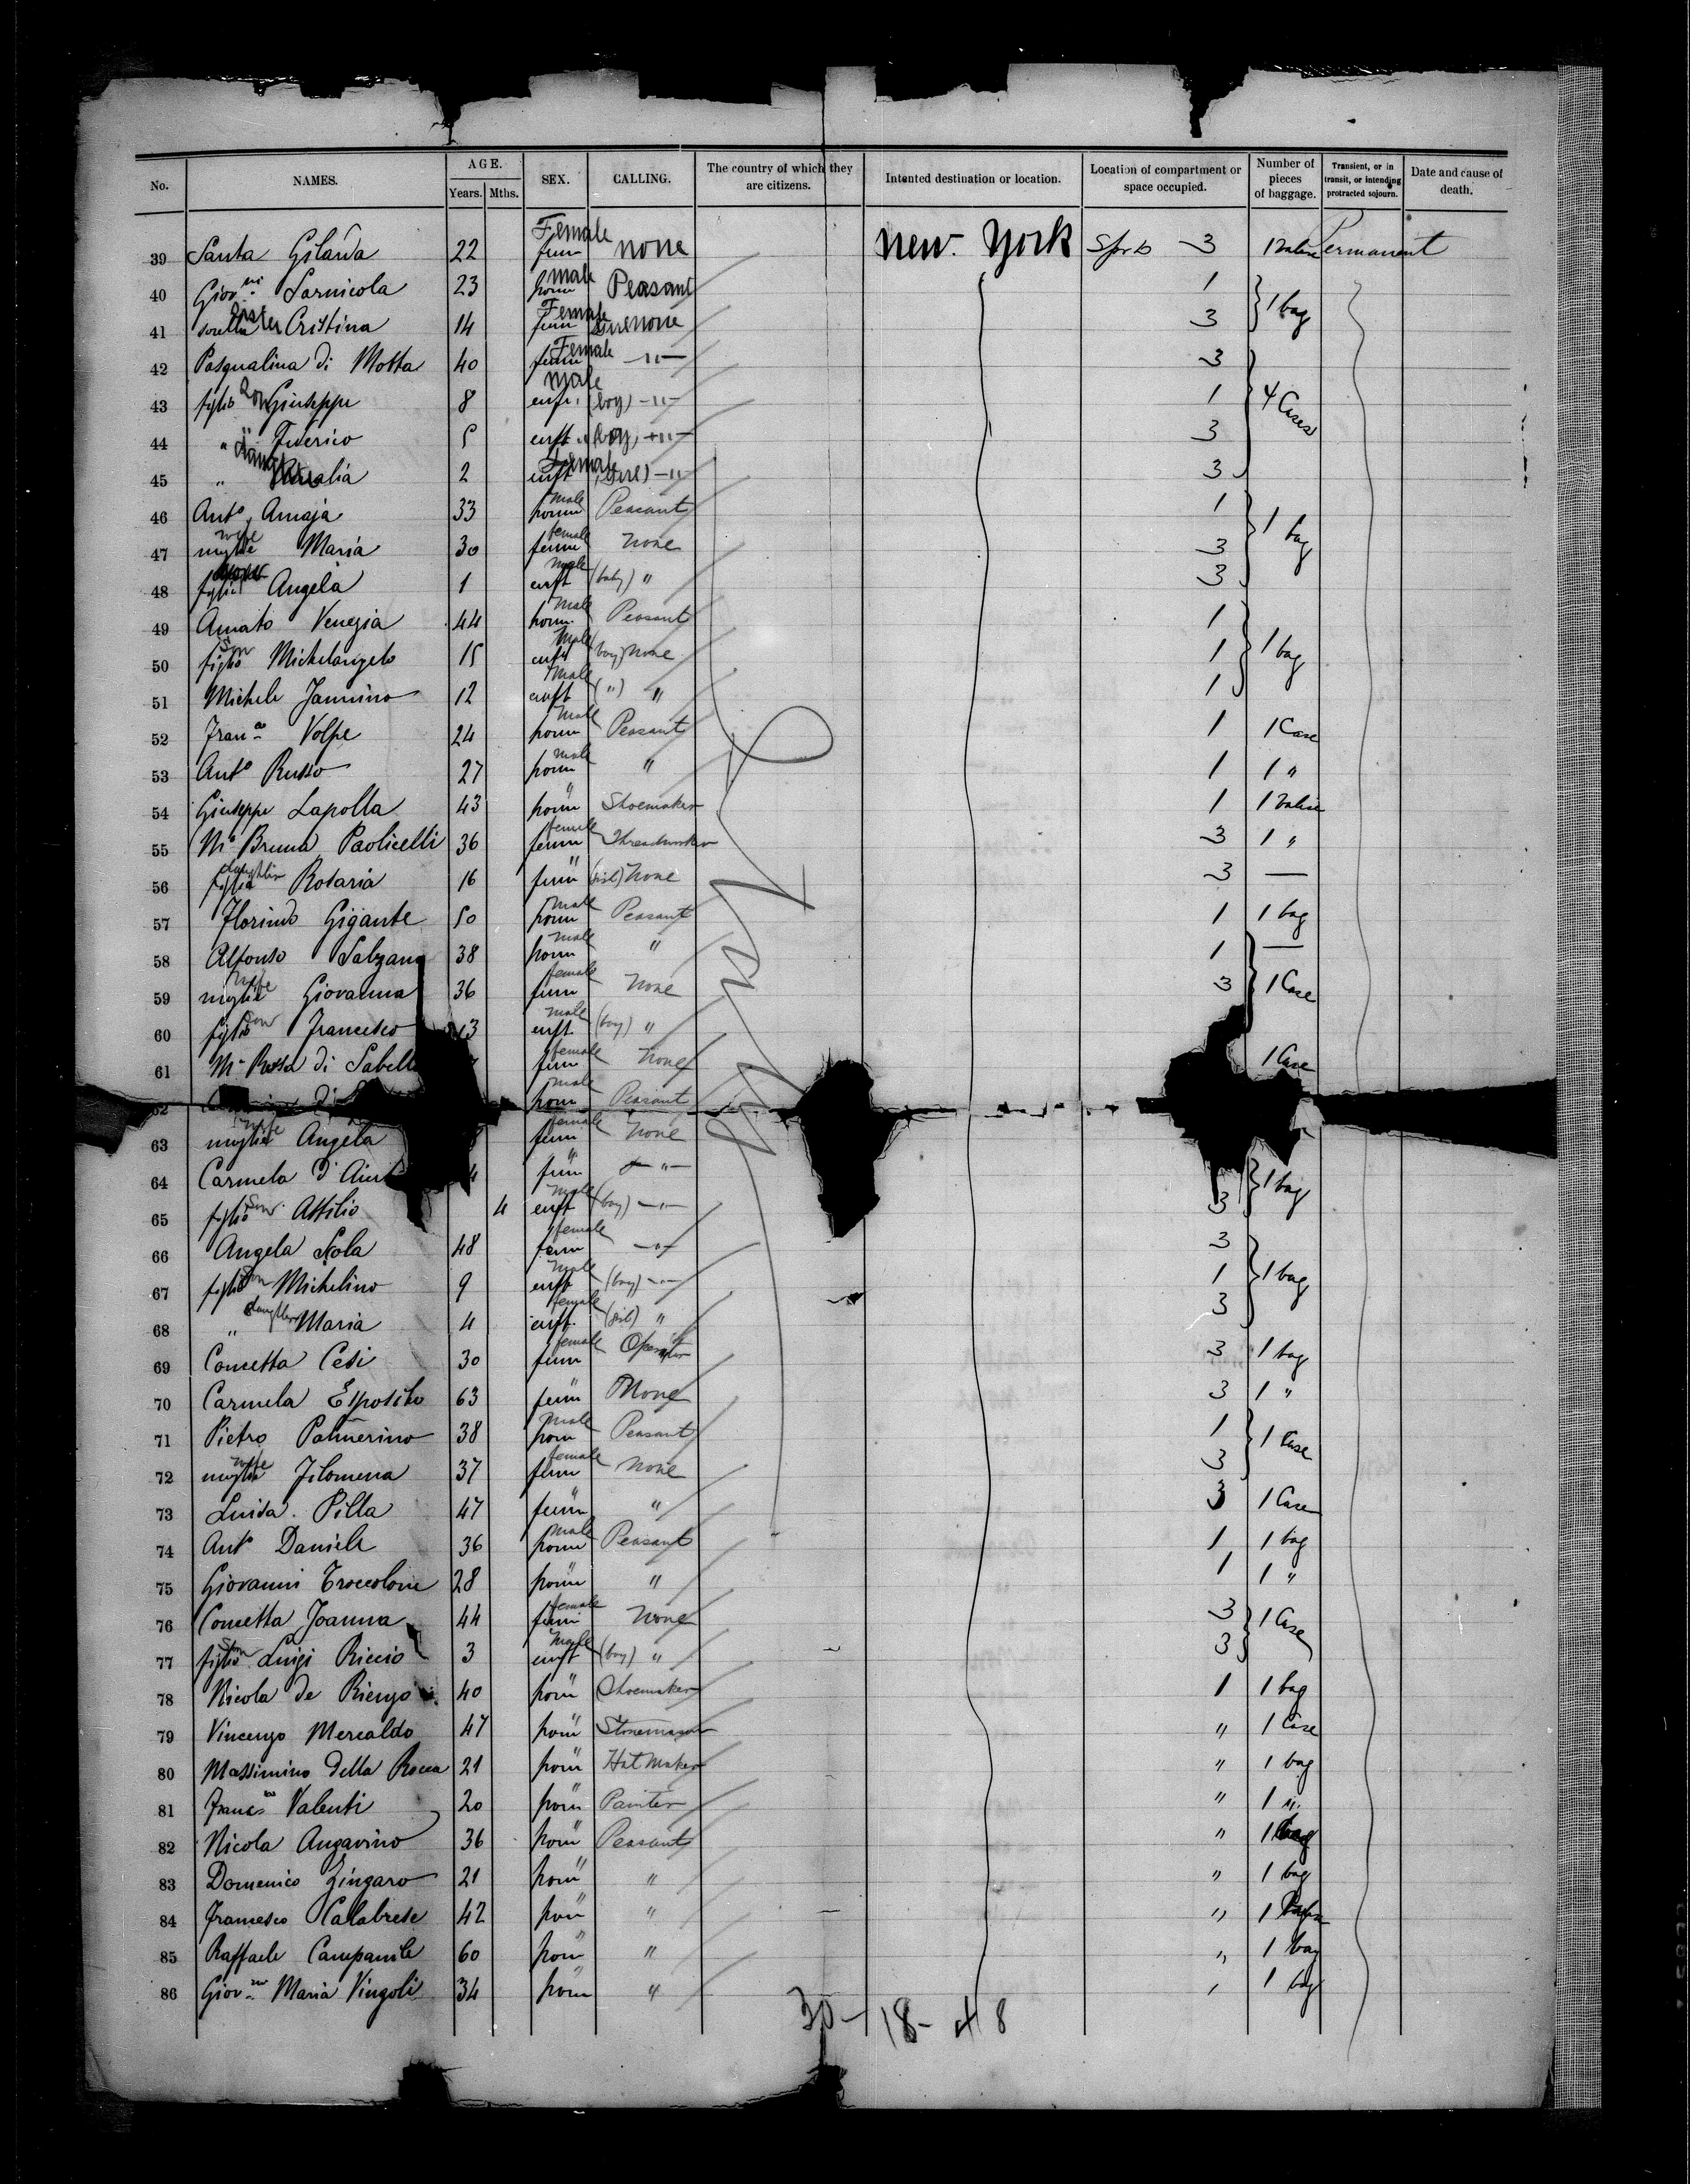 No. NAMES. AGE. Years. Mths. SEX. CALLING. The country of which they are citizens. Intented destination or location. Location of compartment or space occupied. Number of pieces of baggage. Transient, or in transit, or intending protracted sojourn. Date and cause of death.
39 Santa 22 Female fem none New-York 3 1 Permanent
40 Giov.ni Sarnicola 23 male hom Peasant 1 } 1 bag
41 sorella Sister Cristina 14 Female fem none 3
42 Pasqualina di Motta 40 Female fem —"— 3
43 figlio Son Giuseppe 8 male enf. (boy) —"— 1 } 4 Cases
44 " " Federico 5 enft " (boy) —"— 3
45 " 2 Female enft (Girl) —" 3
46 Anto Amaja 33 male homm Peasant 1
47 moglie wife Maria 30 female femm None 3 } 1 bag
48 Angela 1 male enft (baby) " 3
49 Amato Venezia 44 Male hom. Peasant 1
50 figlio Son Michelangelo 15 Male enft (boy) None 1 } 1 bag
51 Michele Jannino 12 Male enft (") " 1
52 Fran.co Volpe 24 Male homm Peasant 1 1 Case
53 Anto Russo 27 male homm " 1 1 "
54 Giuseppe Lapolla 43 " homm Shoemaker 1 1 Valise
55 Ma Bruna Paolicelli 36 female femm Threadworker 3 1 "
56 figlia daughter Rosaria 16 " fem (girl) None 3 —
57 Florindo Gigante 50 male homm Peasant 1 1 bag
58 Alfonso Salzano 38 male homm " 1 —
59 moglie wife Giovanna 36 female femm None 3 } 1 Case
60 figlio Son Francesco 13 male enft. (boy) "
61 Ma Rosa di Sabell female fem None 1 Case
62 di male hom Peasant
63 moglie wife Angela female fem None
64 Carmela d' 4 " fem —"— } 1 bag
65 figlio Son Attilio 4 Male enft (boy) —"— 3
66 Angela Nola 48 female fem —"— 3
67 figlio Son Michelino 9 Male enft (boy) —"— 1 } 1 bag
68 " daughter Maria 4 female enft. (girl) " 3
69 Concetta Cesi 30 female femm Operator 3 1 bag
70 Carmela Esposito 63 " fem None 3 1 "
71 Pietro Palmerino 38 Male hom Peasant 1 } 1 Case
72 moglie wife Filomena 37 female femm None 3
73 Luisa. Pilla 47 " femm " 3 1 Case
74 Anto Daniele 36 Male homm Peasant 1 1 bag
75 Giovanni Troccolone 28 " hom " 1 1 "
76 Concetta Joanna 44 female fem None 3 } 1 Case
77 figlio Son Luigi Riccio 3 Male enft (boy) " 3
78 Nicola de Rienzo 40 " hom Shoemaker 1 1 bag
79 Vincenzo Mercaldo 47 " hom Stonemason " 1 Case
80 Massimino della Rocca 21 " hom Hat Maker " 1 bag
81 Franc.co Valenti 20 " hom Painter " 1 "
82 Nicola Angavino 36 " hom Peasant " 1 bag
83 Domenico Zingaro 21 " hom " " 1 bag
84 Francesco Calabrese 42 " hom " " 1
85 Raffaele Campanile 60 " hom " " 1 bag
86 Giov.ni Maria Vingoli 34 " hom " " 1 bag
30 — 18 - 48